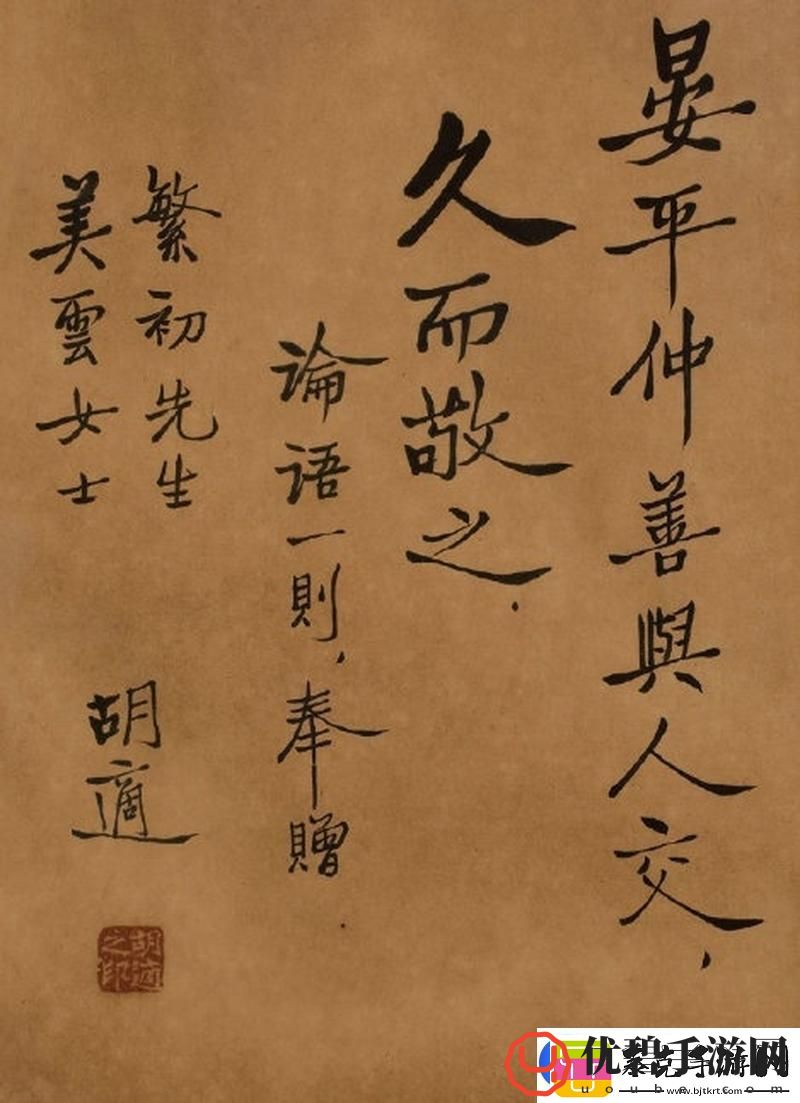 晏平仲善與人交，
久而敬之．
論語一則，奉贈
繁初先生
美雲女士
胡適
胡適之印
优碧手游网
uoube.com
www.bjtkrt.com